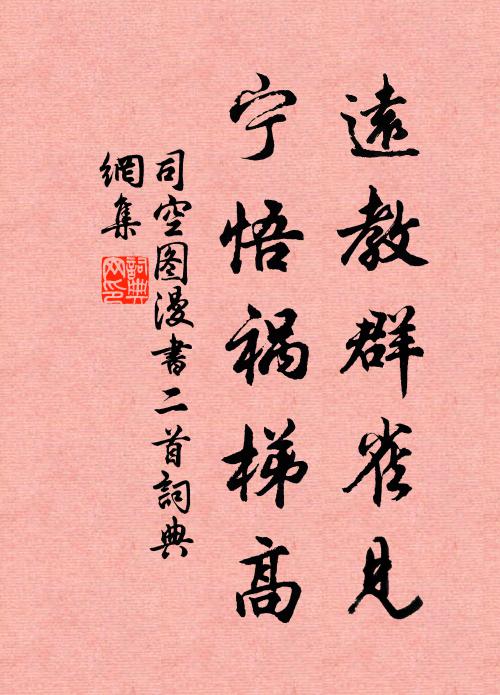 遠教群雀見
宁悟祸梯高
司空图漫書二首詞典
網集
詞典
网印